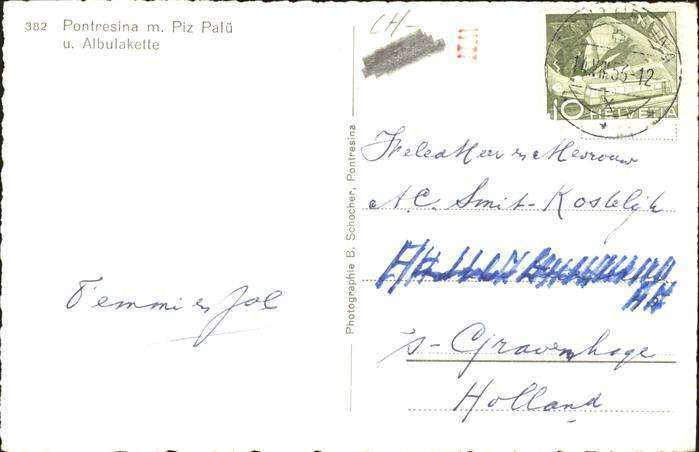 382 Pontresina m. Piz Palü
u. Albulakette
CH-
10 HELVETIA
Photographie B. Schocher, Pontresina
WelEd Heer en Mevrouw
A.C. Smit-Kostelijk
's-Gravenhage
Holland
Femmi en Jol